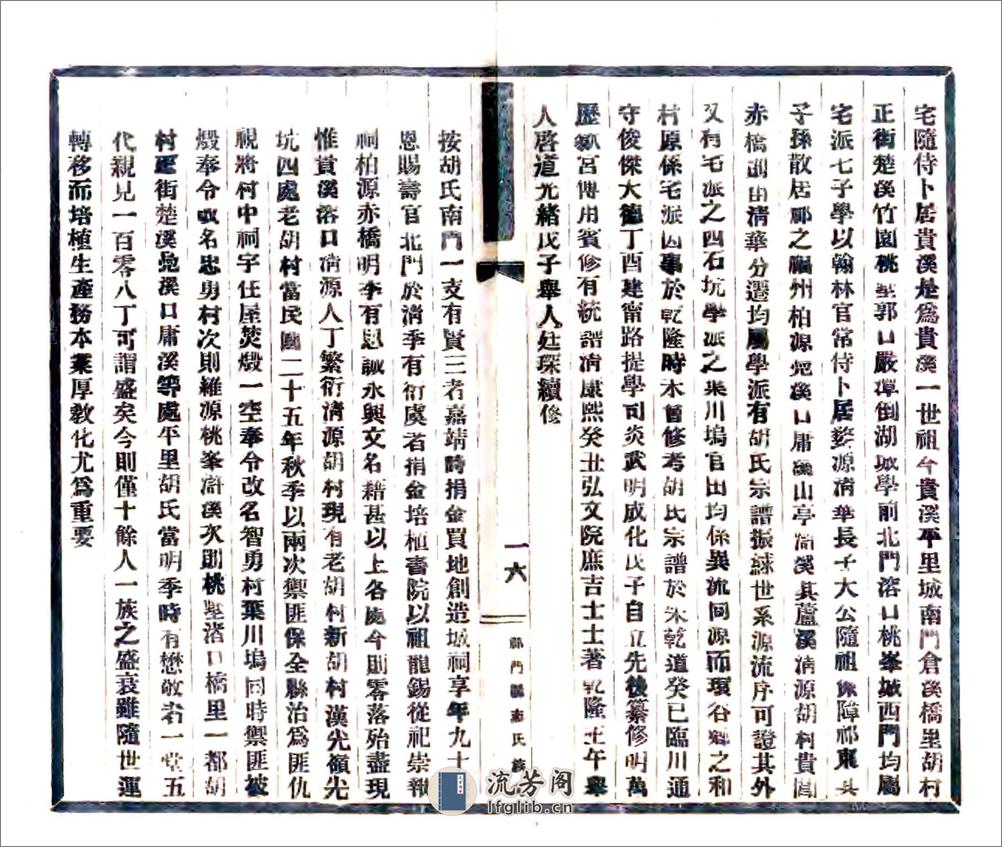 宅隨侍卜居貴溪是爲貴溪一世祖今貴溪平里城南門倉溪橋里胡村
正街楚溪竹園桃墅郭口嚴潭倒湖城學前北門溶口桃峯城西門均屬
宅派七子學以翰林官常侍卜居婺源清華長子大公隨祖保障祁東其
子孫散居祁之福州柏源溪口庸溪山亭溪其蘆溪清源胡村貴
赤橋胡由清華分遷均屬學派有胡氏宗譜振綠世系源流序可證其外
又有宅派之四石坑學派之葉川塢官田均係異流同源而環谷鄉之和
村原係宅派因事於乾隆時未會修考胡氏宗譜於宋乾道癸巳臨川通
守俊傑大德丁酉建甯路提學司炎武明成化戊子自立先後纂修明萬
歷宮傅用賓修有統譜清康熙癸丑弘文院庶吉士士著乾隆壬午舉
人啓道光緒戊子舉人廷琛續修
一六
祁門縣志氏族
按胡氏南門一支有賢三者嘉靖時捐金買地創造城祠享年九十
恩賜壽官北門於清季有衍虞者捐金培植書院以祖龍錫從祀崇報
祠柏源赤橋明季有思誠永興文名藉甚以上各處今則零落殆盡現
惟貴溪溶口清源人丁繁衍清源胡村現有老胡村新胡村漢光嶺光
坑四處老胡村當民國二十五年秋季以兩次禦匪保全縣治爲匪仇
視將村中祠宇住屋焚燬一空奉令改名智勇村葉川塢同時禦匪被
燬奉令改名忠勇村次則維源桃峯溪次則桃墅渚口橋里一都胡
村正街楚溪溪口庸溪等處平里胡氏當明季時有懋敬者一堂五
代親見一百零八丁可謂盛矣今則僅十餘人一族之盛衰雖隨世運
轉移而培植生產務本業厚敎化尤爲重要
流芳阁
lfglib.cn